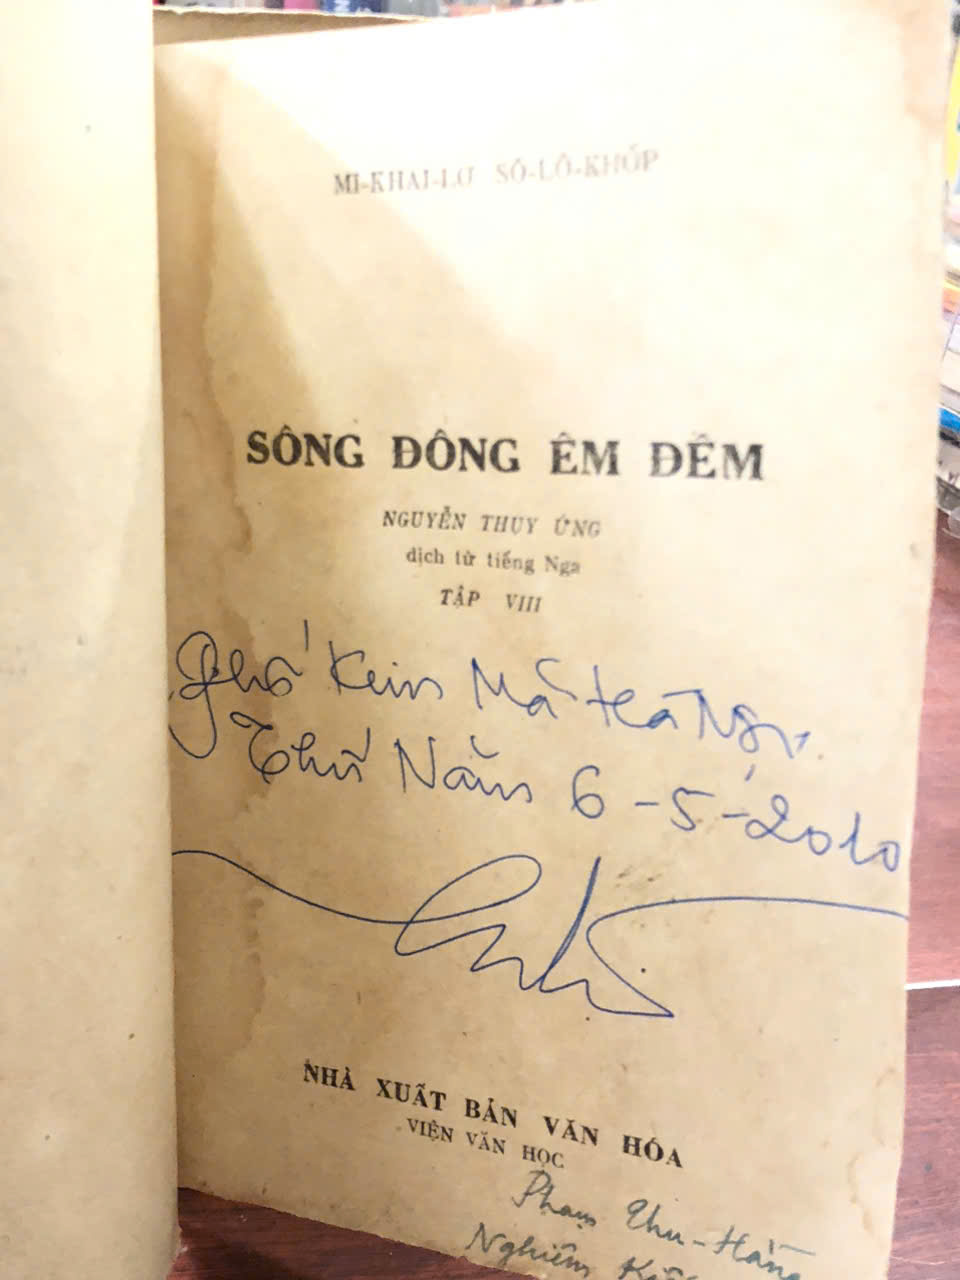 MI-KHAI-LƠ SÔ-LÔ-KHỐP
SÔNG ĐÔNG ÊM ĐỀM
NGUYỄN THỤY ỨNG
dịch từ tiếng Nga
TẬP VIII
phố Kim Mã Hà Nội.
Thứ Năm 6-5-2010
NHÀ XUẤT BẢN VĂN HÓA
VIỆN VĂN HỌC
Phạm Thu-Hằng
Nghiêm